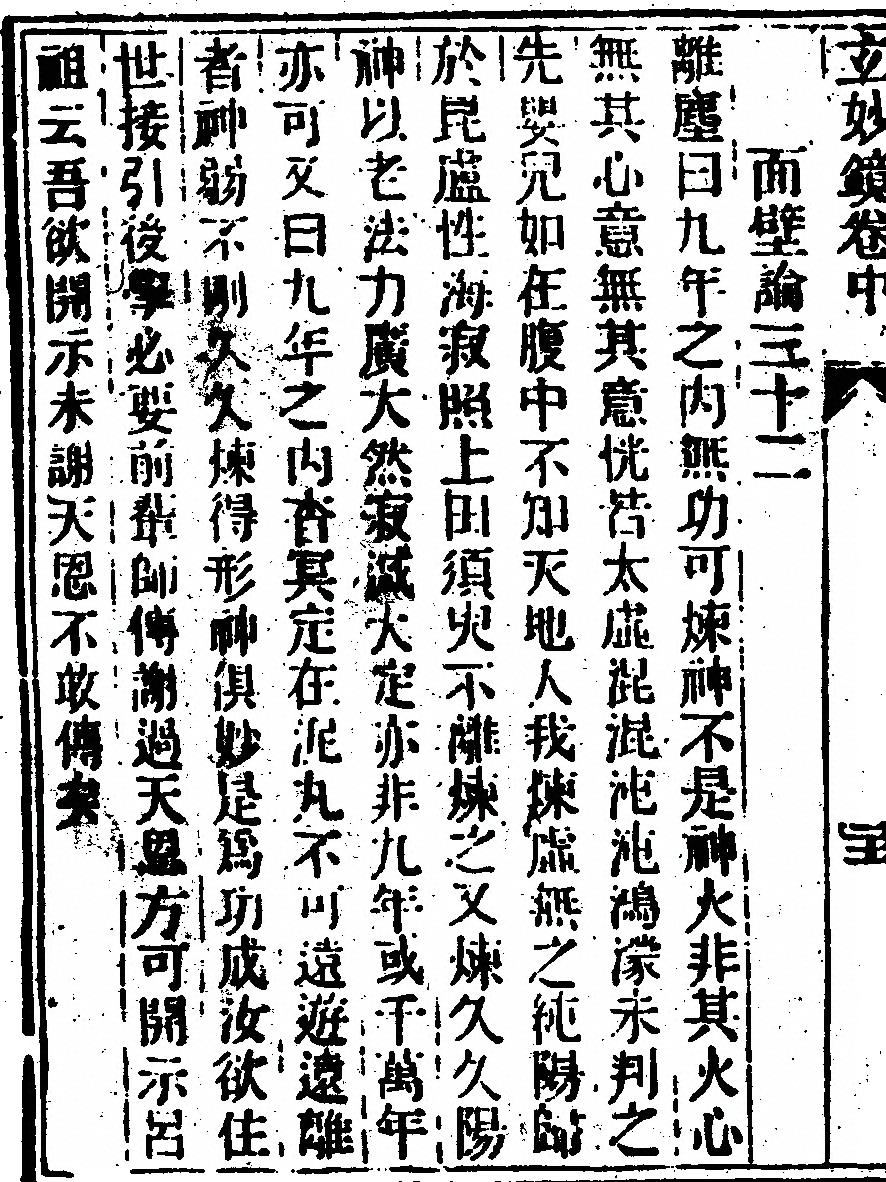 立妙鏡卷中
面壁論三十二
離塵曰九年之内無功可煉神不是神火非其火心
無其心意無其意恍若太虛混混沌沌鴻濛未判之
先嬰兒如在腹中不知天地人我煉虛無之純陽歸
於昆盧性海寂照上田須臾不離煉之又煉久久陽
神以老法力廣大然寂滅大定亦非九年或千萬年
亦可又曰九年之内杳冥定在泥丸不可遠遊遠離
者神弱不剛久久煉得形神俱妙是爲功成汝欲住
世接引後學必要前輩師傳謝過天恩方可開示呂
祖云吾欲開示未謝天恩不敢傳矣